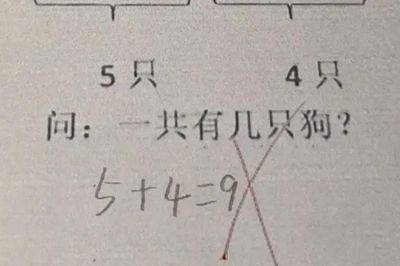 5 只 4 只
问：一共有几只狗？
5+4=9